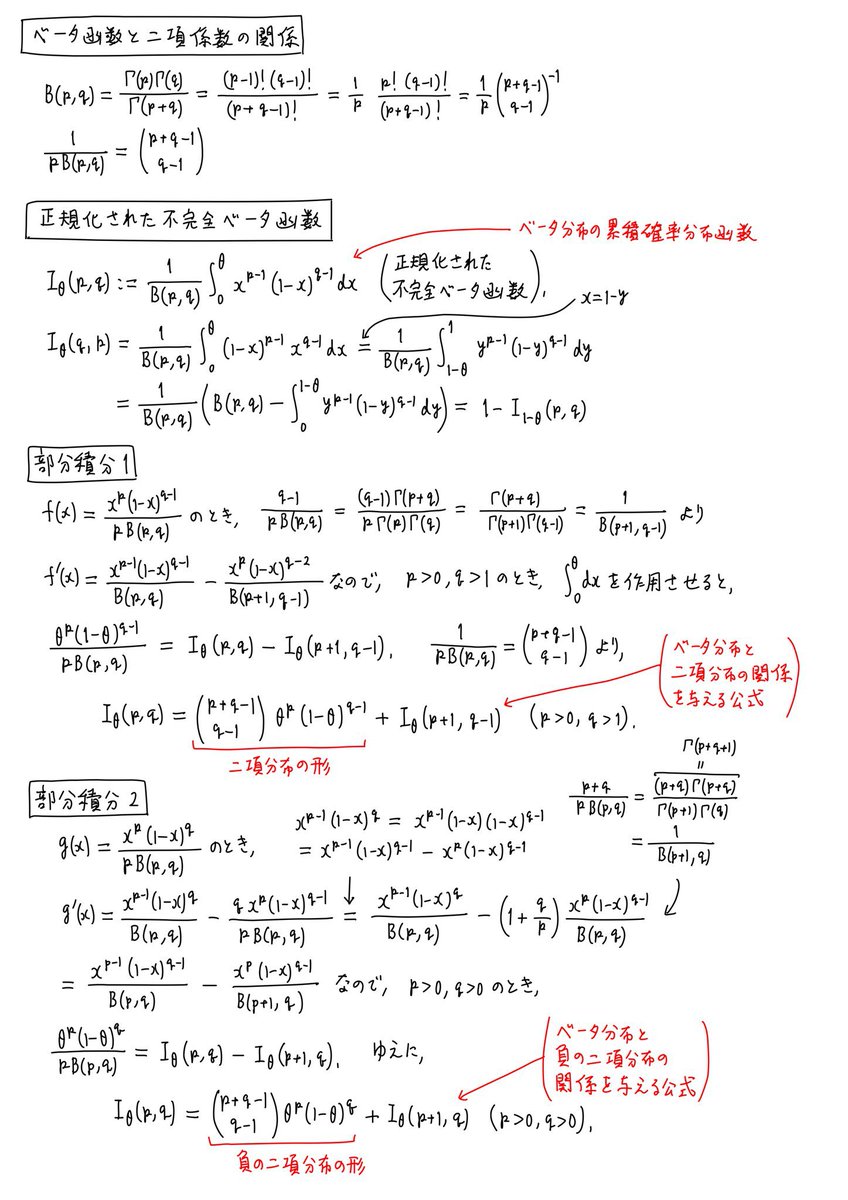 ベータ函数と二項係数の関係
B(p,q) = Γ(p)Γ(q)/Γ(p+q) = (p-1)!(q-1)!/(p+q-1)! = 1/p p!(q-1)!/(p+q-1)! = 1/p (p+q-1 q-1)^{-1}
1/(pB(p,q)) = (p+q-1 q-1)
正規化された不完全ベータ函数
ベータ分布の累積確率分布函数
I_θ(p,q) := 1/B(p,q) ∫_0^θ x^{p-1}(1-x)^{q-1}dx (正規化された不完全ベータ函数),
x=1-y
I_θ(q,p) = 1/B(p,q) ∫_0^θ (1-x)^{p-1} x^{q-1}dx = 1/B(p,q) ∫_{1-θ}^1 y^{p-1}(1-y)^{q-1}dy
= 1/B(p,q) (B(p,q) - ∫_0^{1-θ} y^{p-1}(1-y)^{q-1}dy) = 1 - I_{1-θ}(p,q)
部分積分1
f(x) = x^p(1-x)^{q-1}/(pB(p,q)) のとき, (q-1)/(pB(p,q)) = (q-1)Γ(p+q)/(pΓ(p)Γ(q)) = Γ(p+q)/(Γ(p+1)Γ(q-1)) = 1/B(p+1,q-1) より
f'(x) = x^{p-1}(1-x)^{q-1}/B(p,q) - x^p(1-x)^{q-2}/B(p+1,q-1) なので, p>0, q>1 のとき, ∫_0^θ dx を作用させると,
θ^p(1-θ)^{q-1}/(pB(p,q)) = I_θ(p,q) - I_θ(p+1,q-1). 1/(pB(p,q)) = (p+q-1 q-1) より,
(ベータ分布と
二項分布の関係
を与える公式)
I_θ(p,q) = (p+q-1 q-1) θ^p(1-θ)^{q-1} + I_θ(p+1,q-1) (p>0, q>1).
二項分布の形
部分積分2
g(x) = x^p(1-x)^q/(pB(p,q)) のとき,
x^{p-1}(1-x)^q = x^{p-1}(1-x)(1-x)^{q-1}
= x^{p-1}(1-x)^{q-1} - x^p(1-x)^{q-1}
Γ(p+q+1)
=
(p+q)/(pB(p,q)) = (p+q)Γ(p+q)/(Γ(p+1)Γ(q))
= 1/B(p+1,q)
g'(x) = x^{p-1}(1-x)^q/B(p,q) - qx^p(1-x)^{q-1}/(pB(p,q)) = x^{p-1}(1-x)^q/B(p,q) - (1+q/p) x^p(1-x)^{q-1}/B(p,q)
= x^{p-1}(1-x)^{q-1}/B(p,q) - x^p(1-x)^{q-1}/B(p+1,q) なので, p>0, q>0 のとき,
θ^p(1-θ)^q/(pB(p,q)) = I_θ(p,q) - I_θ(p+1,q). ゆえに,
(ベータ分布と
負の二項分布の
関係を与える公式)
I_θ(p,q) = (p+q-1 q-1) θ^p(1-θ)^q + I_θ(p+1,q) (p>0, q>0).
負の二項分布の形